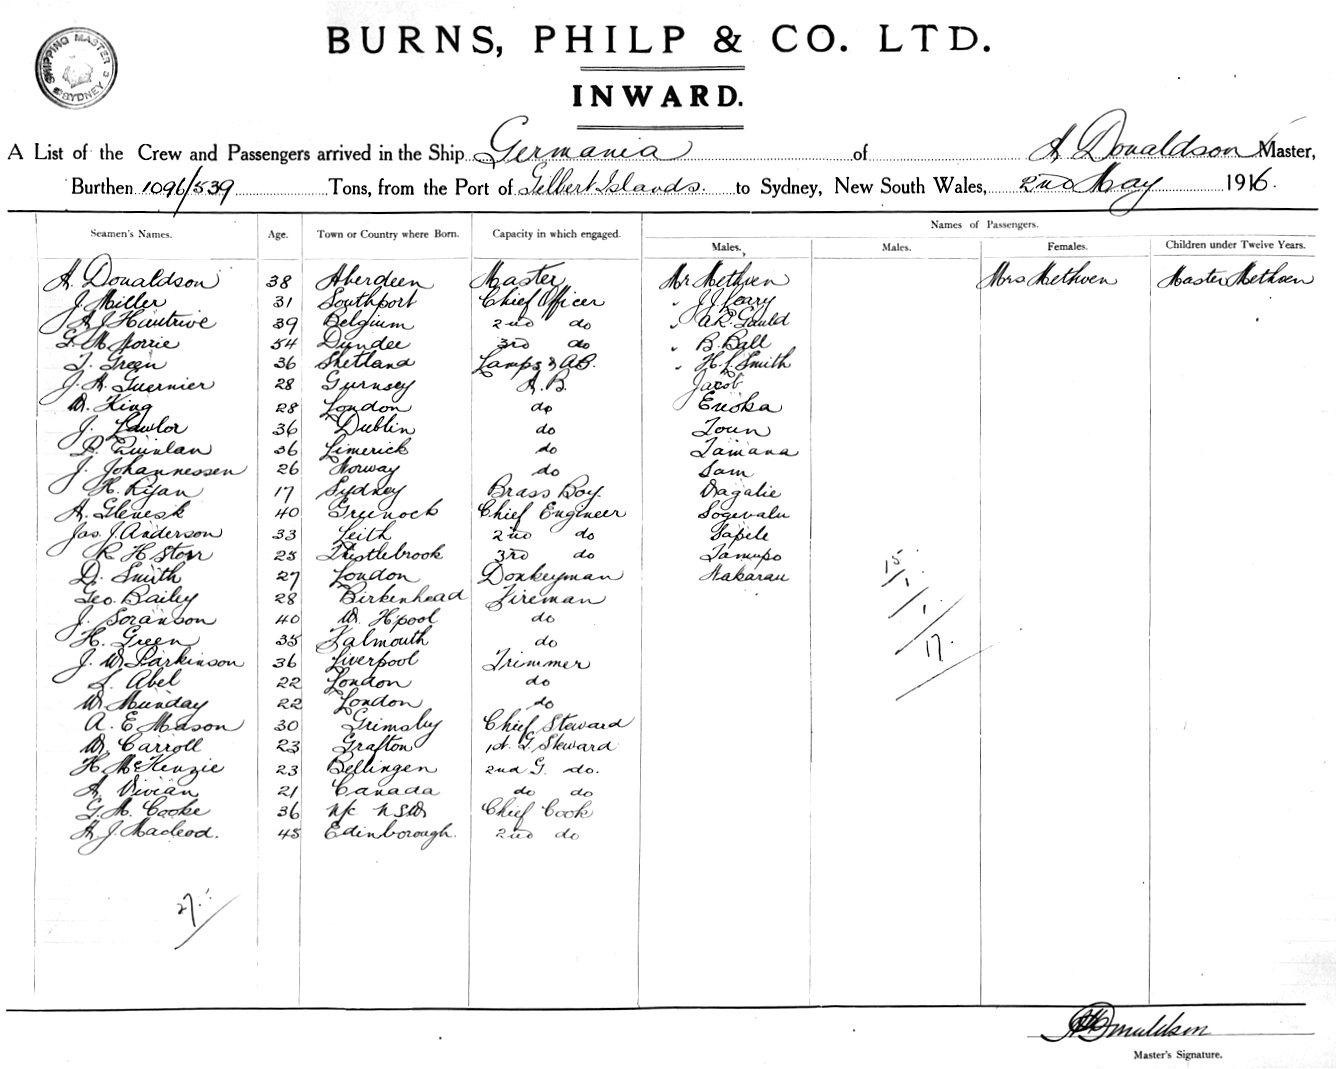 SHIPPING MASTER SYDNEY
BURNS, PHILP & CO. LTD.
INWARD.
A List of the Crew and Passengers arrived in the Ship Germania of A Donaldson Master,
Burthen 1096/539 Tons, from the Port of Gilbert Islands. to Sydney, New South Wales, 2nd May 1916.
Seamen's Names. Age. Town or Country where Born. Capacity in which engaged. Names of Passengers.
Males. Males. Females. Children under Twelve Years.
A. Donaldson 38 Aberdeen Master Mr Methven Mrs Methven Master Methven
J. Miller 31 Southport Chief Officer " J J Leary
A J Hautrive 39 Belgium 2nd do " A R Gauld
G. M. Norrie 54 Dundee 3rd do " B. Ball
T. Green 36 Shetland Lamps & AB. " H. L. Smith
J. A. Guernier 28 Gurnsey A. B. Jacob
W. King 28 London do Erioka
J. Lawlor 36 Dublin do Toun
P. Quinlan 36 Limerick do Tamana
J. Johannessen 26 Norway do Sam
H. Ryan 17 Sydney Brass Boy. Vagalie
A. Glenesk 40 Greenock Chief Engineer Sogevalu
Jas. J. Anderson 33 Leith 2nd do Sapele
R H Storr 25 Thistlebrook 3rd do Tamupo
D. Smith 27 London Donkeyman Nakarau
Geo. Bailey 28 Birkenhead Fireman
J. Soranson 40 W. H'pool do
H. Green 35 Falmouth do
J. W. Parkinson 36 Liverpool Trimmer
L. Abel 22 London do
W. Munday 22 London do
A. E. Mason 30 Grimsby Chief Steward
W. Carroll 23 Grafton 1st. G. Steward
H. McKenzie 23 Bellingen 2nd G. do.
A. Vivian 21 Canada do do
G. M. Cooke 36 N/c NSW Chief Cook
A. J. Macleod. 45 Edinborough. 2nd do
15
1
1
17.
27.
A Donaldson
Master's Signature.